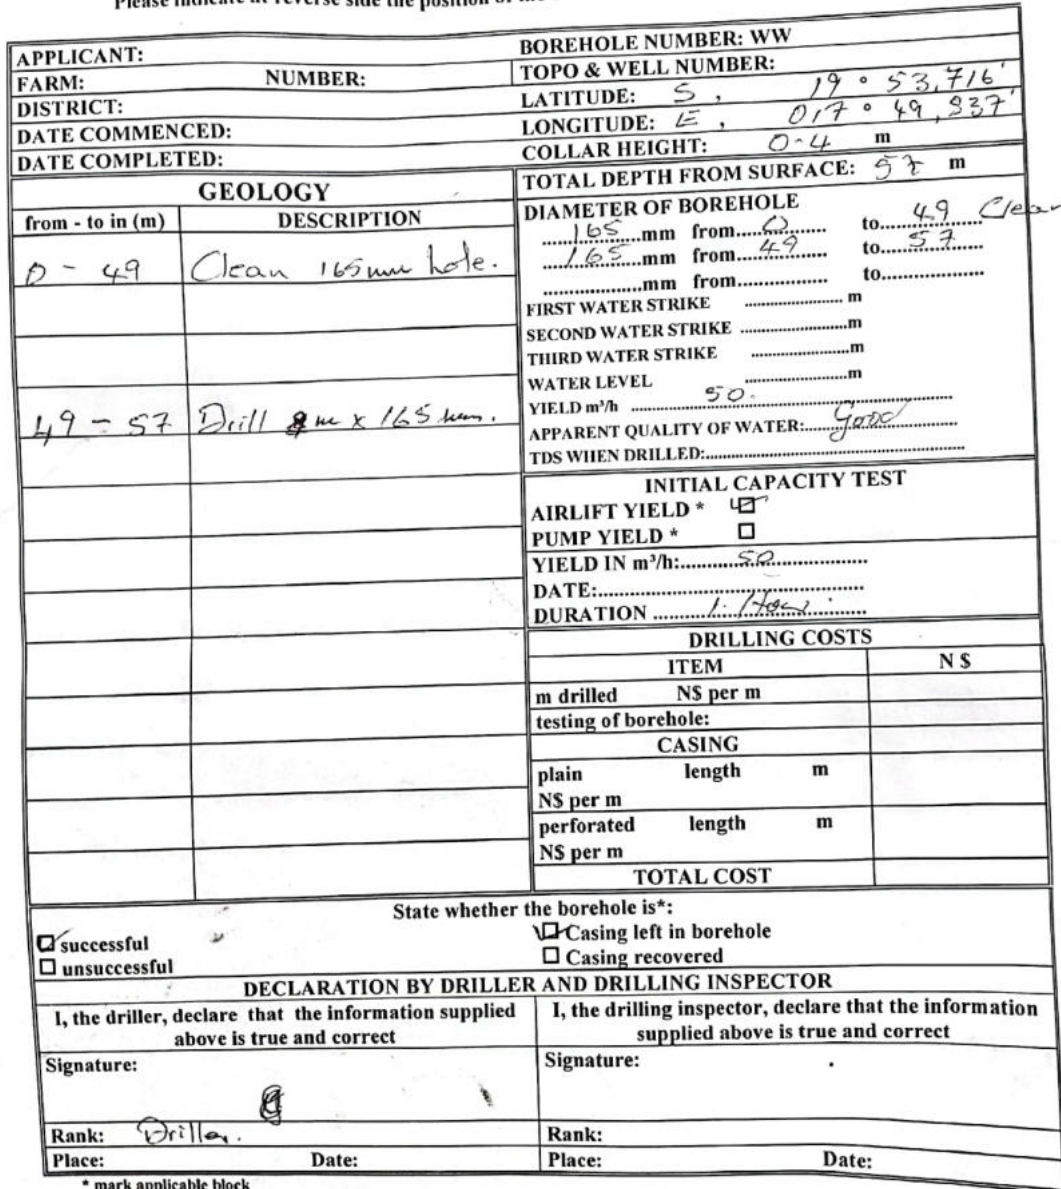 Please indicate at reverse side the position of the
APPLICANT: BOREHOLE NUMBER: WW
FARM: NUMBER: TOPO & WELL NUMBER:
DISTRICT: LATITUDE: S, 19 ° 53,716'
DATE COMMENCED: LONGITUDE: E, 017 ° 49,937'
DATE COMPLETED: COLLAR HEIGHT: 0-4 m
GEOLOGY
from - to in (m) DESCRIPTION
0 - 49 Clean 165mm hole.
49 - 57 Drill 8m x 165 mm.
TOTAL DEPTH FROM SURFACE: 57 m
DIAMETER OF BOREHOLE
165 mm from 0 to 49 Clean
165 mm from 49 to 57
mm from to
FIRST WATER STRIKE m
SECOND WATER STRIKE m
THIRD WATER STRIKE m
WATER LEVEL m
YIELD m³/h 50.
APPARENT QUALITY OF WATER: Good
TDS WHEN DRILLED:
INITIAL CAPACITY TEST
AIRLIFT YIELD *
PUMP YIELD *
YIELD IN m³/h: 50
DATE:
DURATION 1. Hour.
DRILLING COSTS
ITEM N $
m drilled N$ per m
testing of borehole:
CASING
plain length m
N$ per m
perforated length m
N$ per m
TOTAL COST
State whether the borehole is*:
successful Casing left in borehole
unsuccessful Casing recovered
DECLARATION BY DRILLER AND DRILLING INSPECTOR
I, the driller, declare that the information supplied
above is true and correct
I, the drilling inspector, declare that the information
supplied above is true and correct
Signature: Signature:
Rank: Driller. Rank:
Place: Date: Place: Date:
* mark applicable block